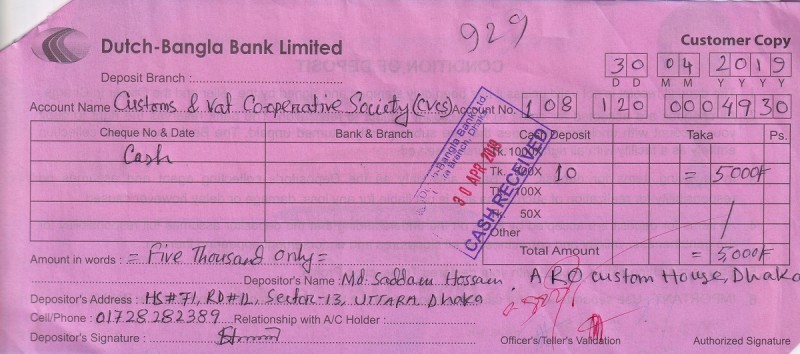 929
Dutch-Bangla Bank Limited
Customer Copy
30 04 2019
D D M M Y Y Y Y
Deposit Branch :
Account Name Customs & Vat Co-operative Society (CVCS) Account No. 108 120 0004930
Cheque No & Date Bank & Branch Cash Deposit Taka Ps.
Cash
Tk. 1000X
Tk. 500X 10 = 5000/-
Tk. 100X
Tk. 50X
Other
Bangla Bank Ltd.
Branch, Dhaka
30 APR 2019
CASH RECEIVED
Total Amount = 5,000/-
Amount in words : = Five Thousand only =
Depositor's Name : Md. Saddam Hossain, ARO custom House, Dhaka
Depositor's Address : HS#71, RD#12, Sector-13, UTTARA, Dhaka
Cell/Phone : 01728282389 Relationship with A/C Holder :
Depositor's Signature :
Officer's/Teller's Validation Authorized Signature